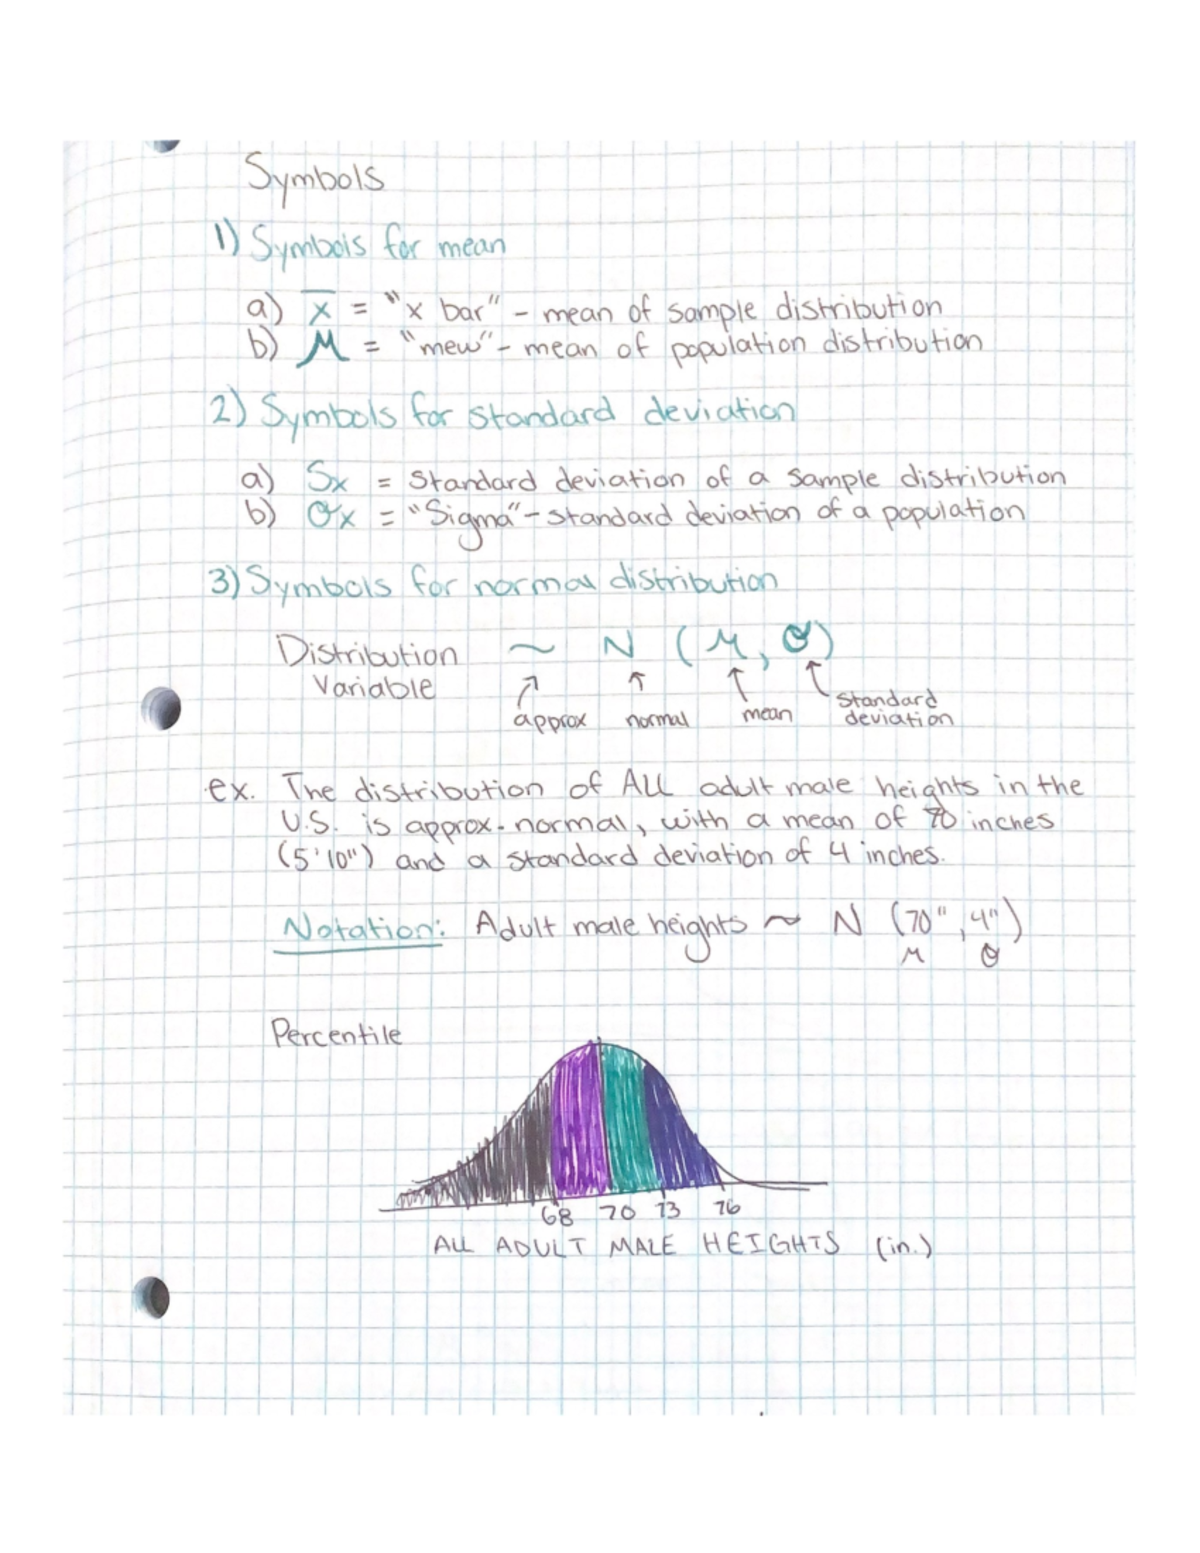 Symbols
1) Symbols for mean
a) x̅ = "x bar" - mean of sample distribution
b) μ = "mew" - mean of population distribution
2) Symbols for standard deviation
a) Sx = Standard deviation of a sample distribution
b) σx = "Sigma" - standard deviation of a population
3) Symbols for normal distribution
Distribution ~ N (μ, σ)
Variable
approx normal mean standard
deviation
ex. The distribution of ALL adult male heights in the
U.S. is approx. normal, with a mean of 70 inches
(5'10") and a standard deviation of 4 inches.
Notation: Adult male heights ~ N (70", 4")
μ σ
Percentile
68 70 73 76
ALL ADULT MALE HEIGHTS (in.)